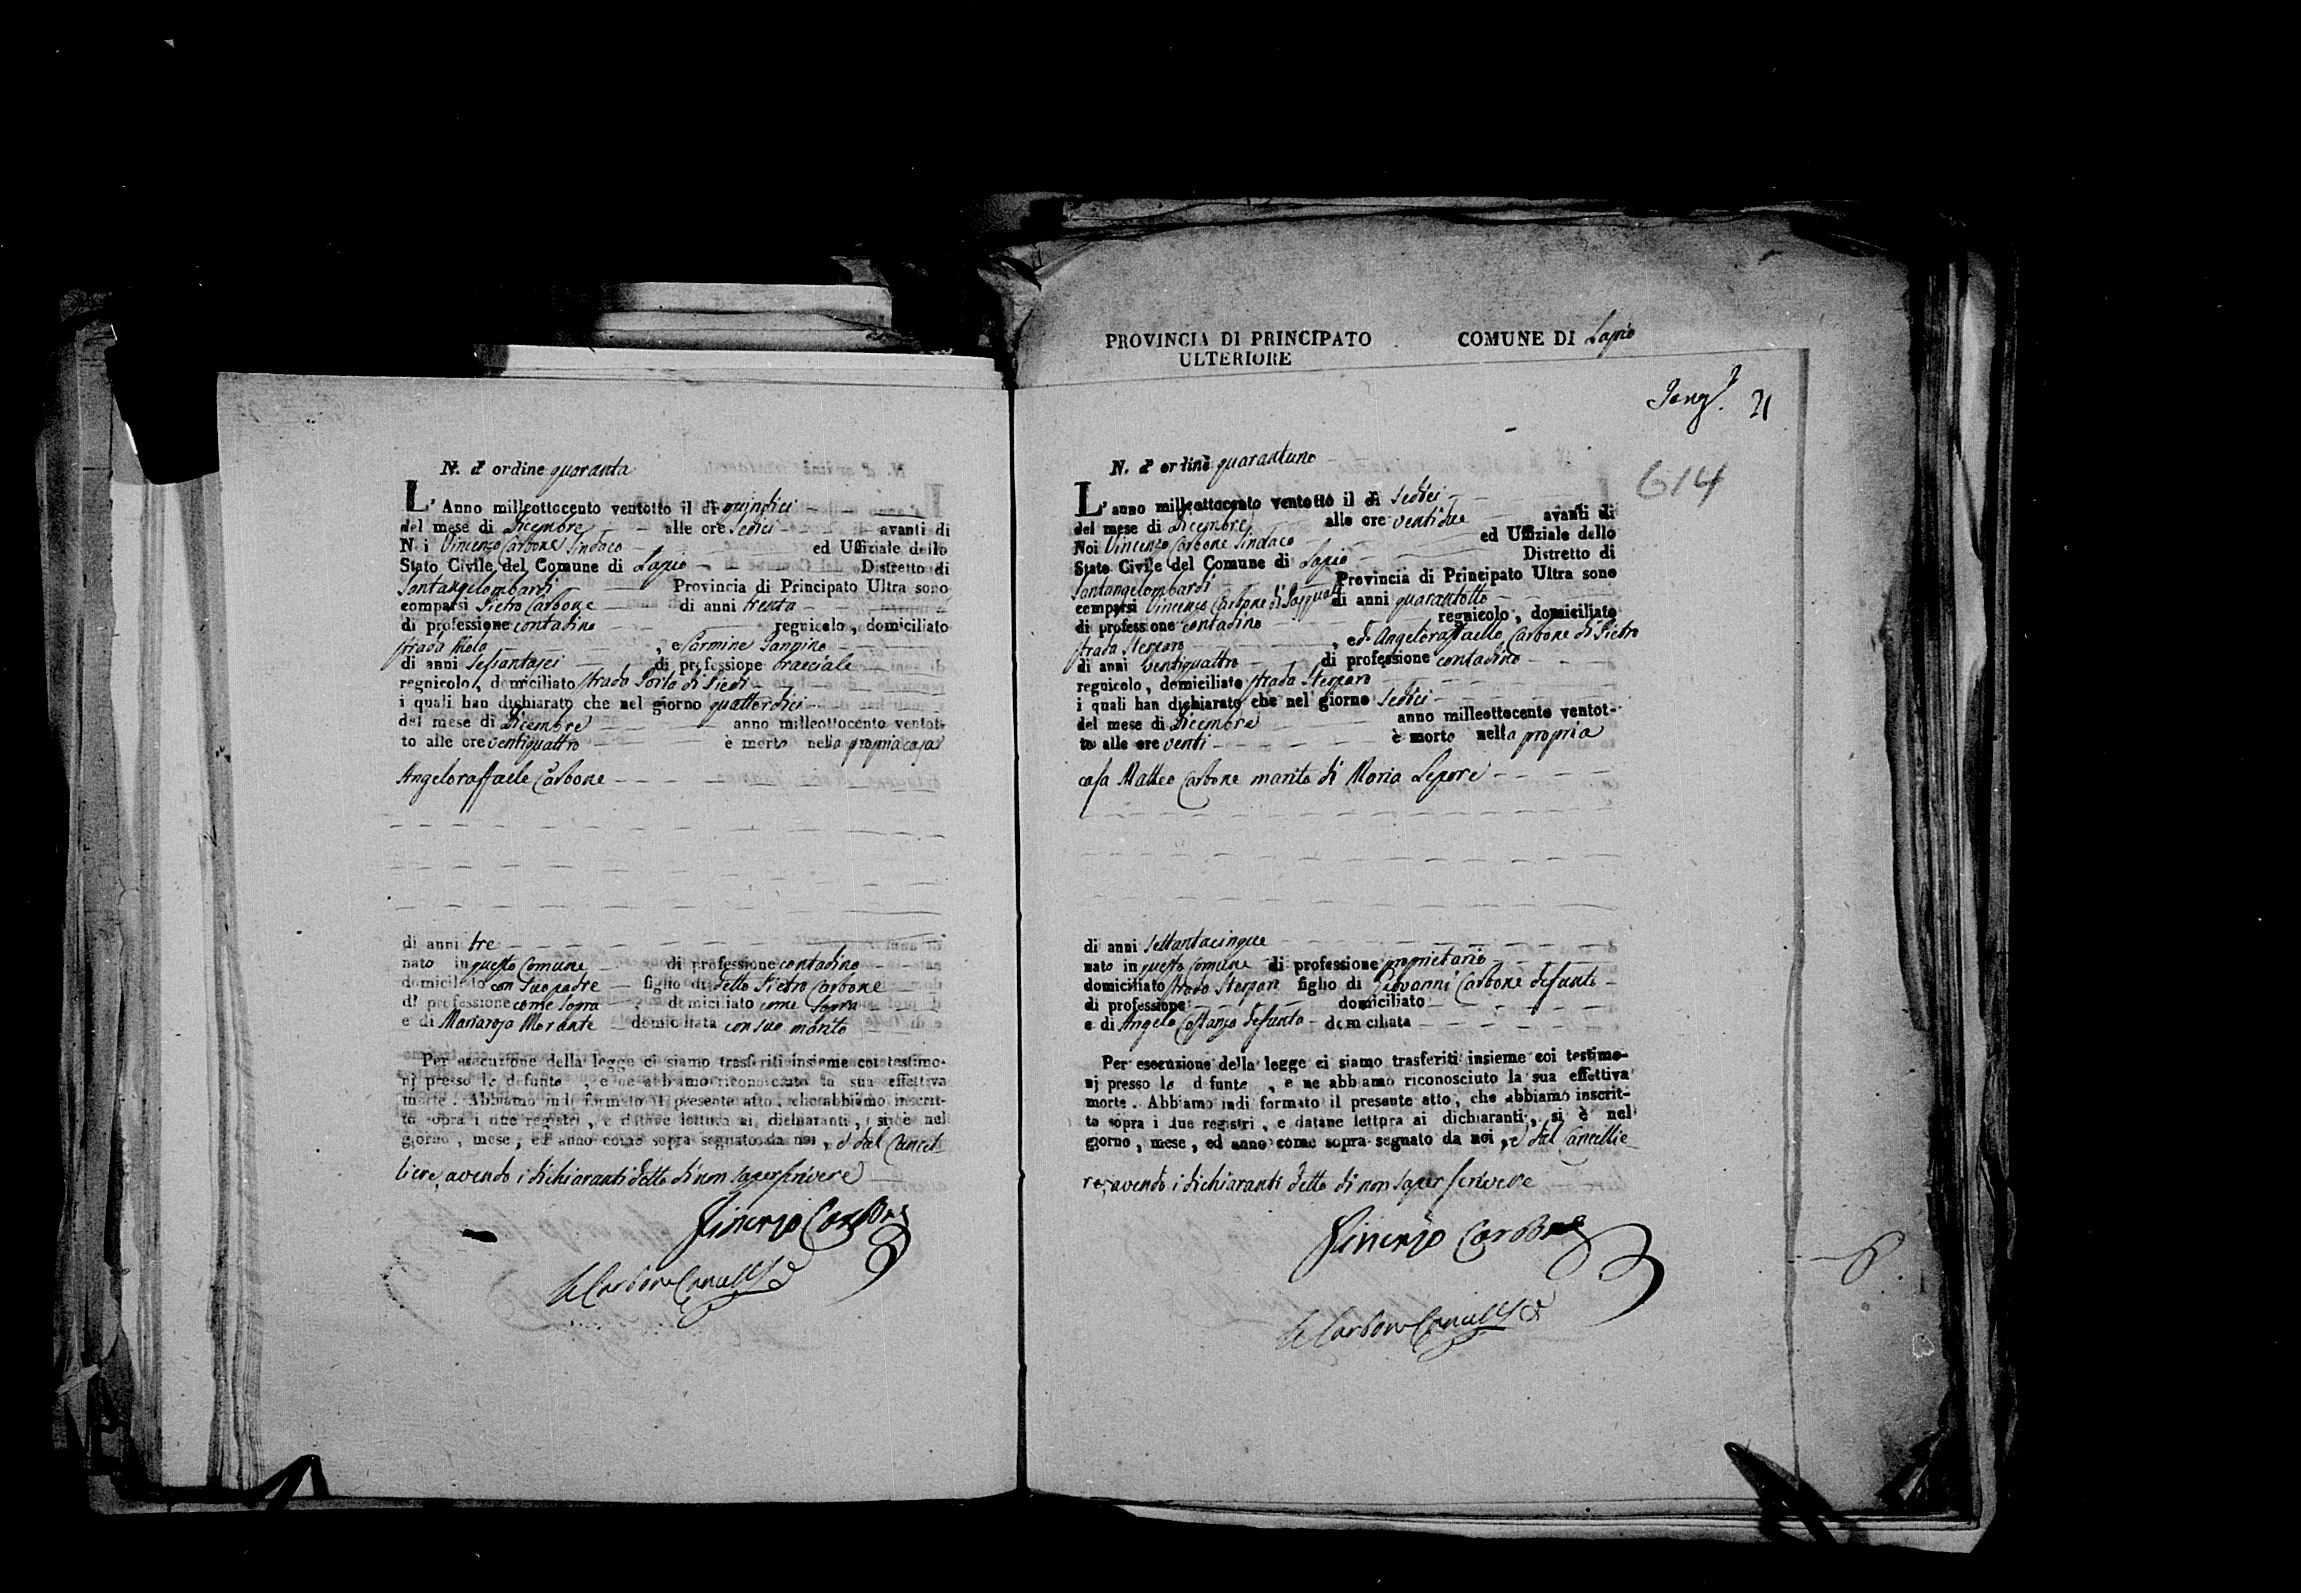 N. d' ordine quaranta
L' Anno milleottocento ventotto il dì quindici
del mese di Dicembre alle ore sedici avanti di
N i Vincenzo Carbone Sindaco ed Uffiziale dello
Stato Civile del Comune di Lapio Distretto di
Santangelombardi Provincia di Principato Ultra sono
comparsi Pietro Carbone di anni trenta
di professione contadino regnicolo, domiciliato
strada , e Carmine
di anni sessantasei di professione bracciale
regnicolo, domiciliato strada Porta di Piedi
i quali han dichiarato che nel giorno quattordici
del mese di Dicembre anno milleottocento ventot-
to alle ore ventiquattro è morto nella propria casa
Angeloraffaele Carbone
di anni tre
nato in questo Comune di professione contadino
domiciliato con suo padre figlio di detto Pietro Carbone
di professione come sopra domiciliato come sopra
e di Mariarosa Morante domiciliata con suo marito
Per esecuzione della legge ci siamo trasferiti insieme coi testimo-
nj presso lo defunto , e ne abbiamo riconosciuto la sua effettiva
morte. Abbiamo indi formato il presente atto, che abbiamo inscrit-
to sopra i due registri, e datane lettura ai dichiaranti, si è nel
giorno, mese, ed anno come sopra segnato da noi, e dal Cancel-
liere, avendo i dichiaranti detto di non saper scrivere
Vincenzo Carbone
Carbone Canc
PROVINCIA DI PRINCIPATO COMUNE DI Lapio
ULTERIORE
21
614
N. d' ordine quarantuno
L' anno milleottocento ventotto il dì sedici
del mese di Dicembre alle ore ventidue avanti di
Noi Vincenzo Carbone Sindaco ed Uffiziale dello
Stato Civile del Comune di Lapio Distretto di
Santangelombardi Provincia di Principato Ultra sono
comparsi Vincenzo Carbone di Pasquale di anni quarantotto
di professione contadino regnicolo, domiciliato
strada , ed Angeloraffaello Carbone di Pietro
di anni ventiquattro di professione contadino
regnicolo, domiciliato strada
i quali han dichiarato che nel giorno sedici
del mese di Dicembre anno milleottocento ventot-
to alle ore venti è morto nella propria
casa Matteo Carbone marito di Maria Lepore
di anni settantacinque
nato in questo Comune di professione proprietario
domiciliato strada figlio di Giovanni Carbone defunto
di professione domiciliato
e di Angela Costanzo defunta domiciliata
Per esecuzione della legge ci siamo trasferiti insieme coi testimo-
nj presso lo d funto , e ne abbiamo riconosciuto la sua effettiva
morte. Abbiamo indi formato il presente atto, che abbiamo inscrit-
to sopra i due registri, e datane lettura ai dichiaranti, si è nel
giorno, mese, ed anno come sopra segnato da noi, e dal Cancellie
re, avendo i dichiaranti detto di non saper scrivere
Vincenzo Carbone
Carbone Canc